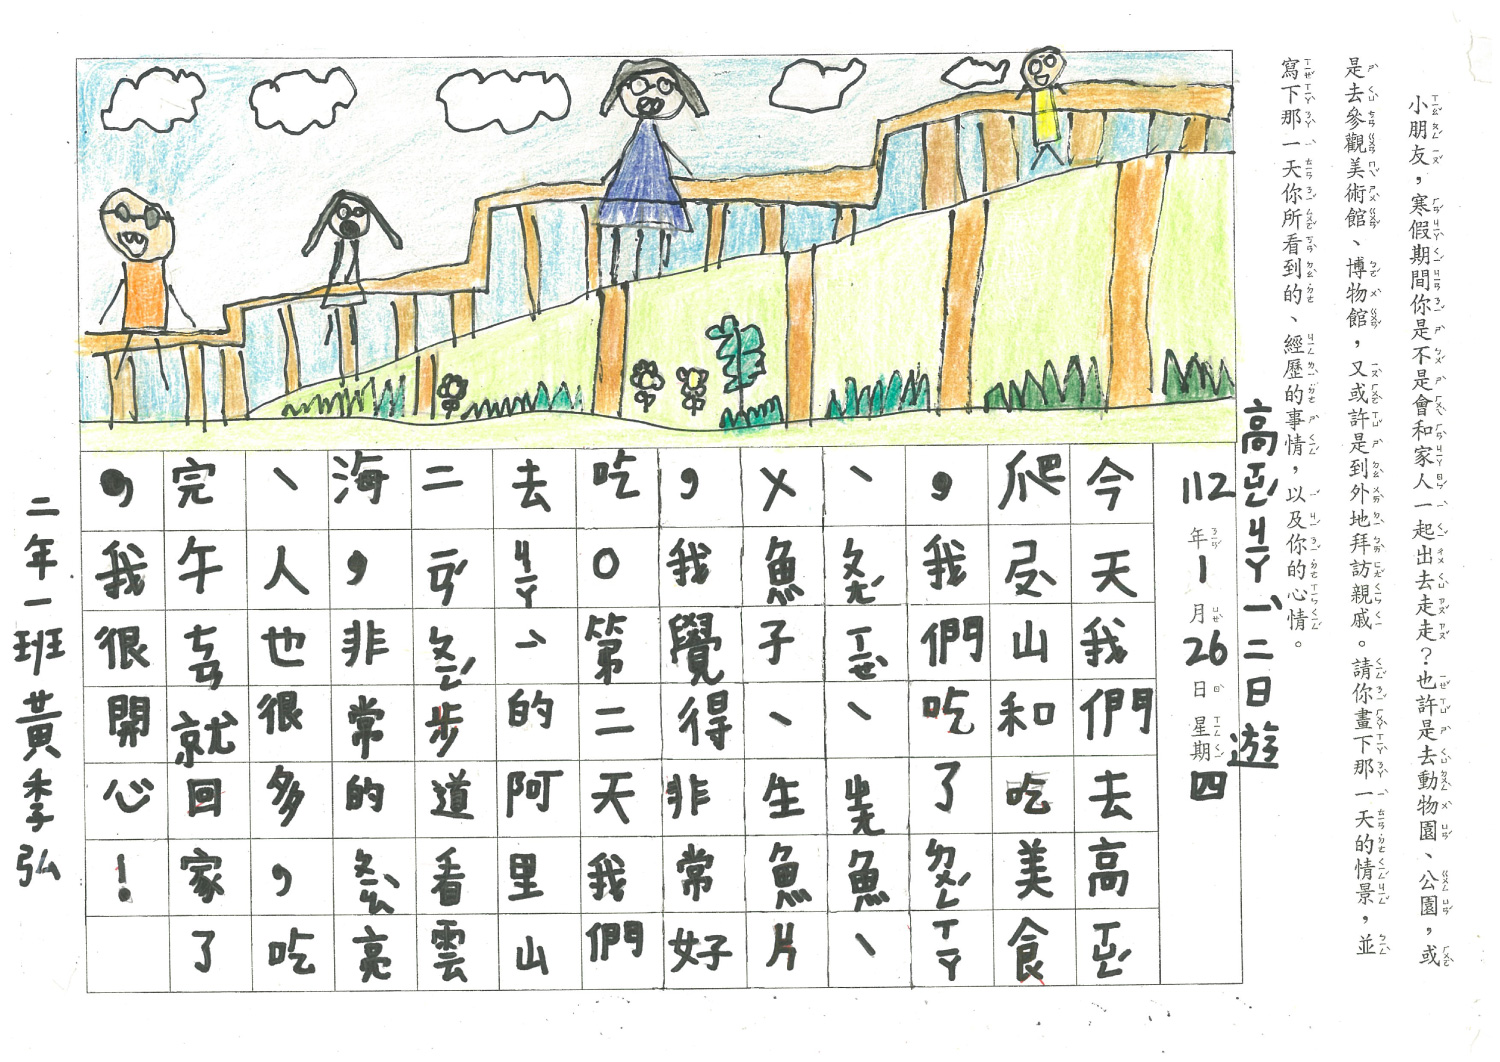 小朋友，寒假期間你是不是會和家人一起出去走走？也許是去動物園、公園，或
是去參觀美術館、博物館，又或許是到外地拜訪親戚。請你畫下那一天的情景，並
寫下那一天你所看到的、經歷的事情，以及你的心情。
高ㄒㄩㄥˊㄐㄧㄚㄧˋ二日遊
112年1月26日星期四
今天我們去高ㄒㄩㄥˊ
爬ㄕㄡˋ山和吃美食
，我們吃了ㄌㄨㄥˊㄒㄧㄚ
、ㄆㄤˊㄒㄧㄝˋ、ㄓㄤ魚、
ㄨ魚子、生魚片
，我覺得非常好
吃。第二天我們
去ㄐㄧㄚㄧˋ的阿里山
二ㄧㄢˊㄆㄧㄥˊ步道看雲
海，非常的ㄆㄧㄠˋ亮
、人也很多，吃
完午ㄘㄢ就回家了
，我很開心！
二年一班黃季弘